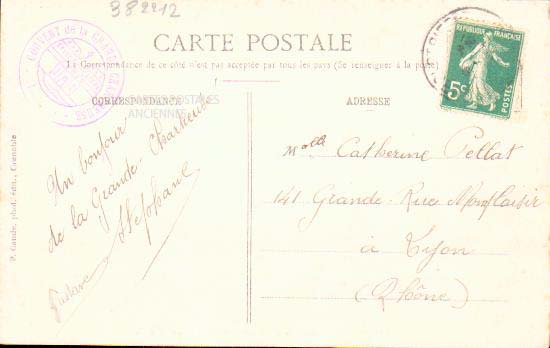 382212
COUVENT de la GRANDE CHARTREUSE
CARTE POSTALE
La Correspondance de ce côté n'est pas acceptée par tous les pays (Se renseigner à la poste)
RÉPUBLIQUE FRANÇAISE
5c
POSTES
CORRESPONDANCE
CARTES POSTALES
ANCIENNES
Un bonjour
de la Grande Chartreuse
Stéphane
Gustave
ADRESSE
Melle Catherine Pellat
141 Grande Rue Monplaisir
à Lyon
(Rhône)